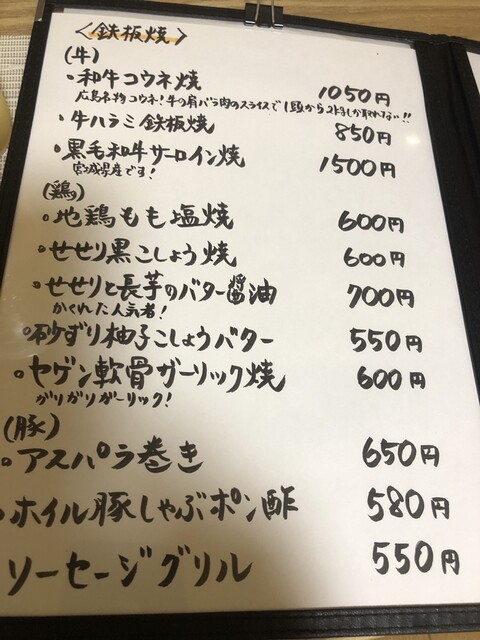 <鉄板焼>
(牛)
・和牛コウネ焼 1050円
広島名物コウネ!牛の肩バラ肉のスライスで1頭から2kgしか取れない!!
・牛ハラミ鉄板焼 850円
・黒毛和牛サーロイン焼 1500円
宮城県産です!
(鶏)
・地鶏もも塩焼 600円
・せせり黒こしょう焼 600円
・せせりと長芋のバター醤油 700円
かくれた人気者!
・砂ずり柚子こしょうバター 550円
・セゲン軟骨ガーリック焼 600円
ガリガリガーリック!
(豚)
・アスパラ巻き 650円
・ホイル豚しゃぶポン酢 580円
ソーセージグリル 550円